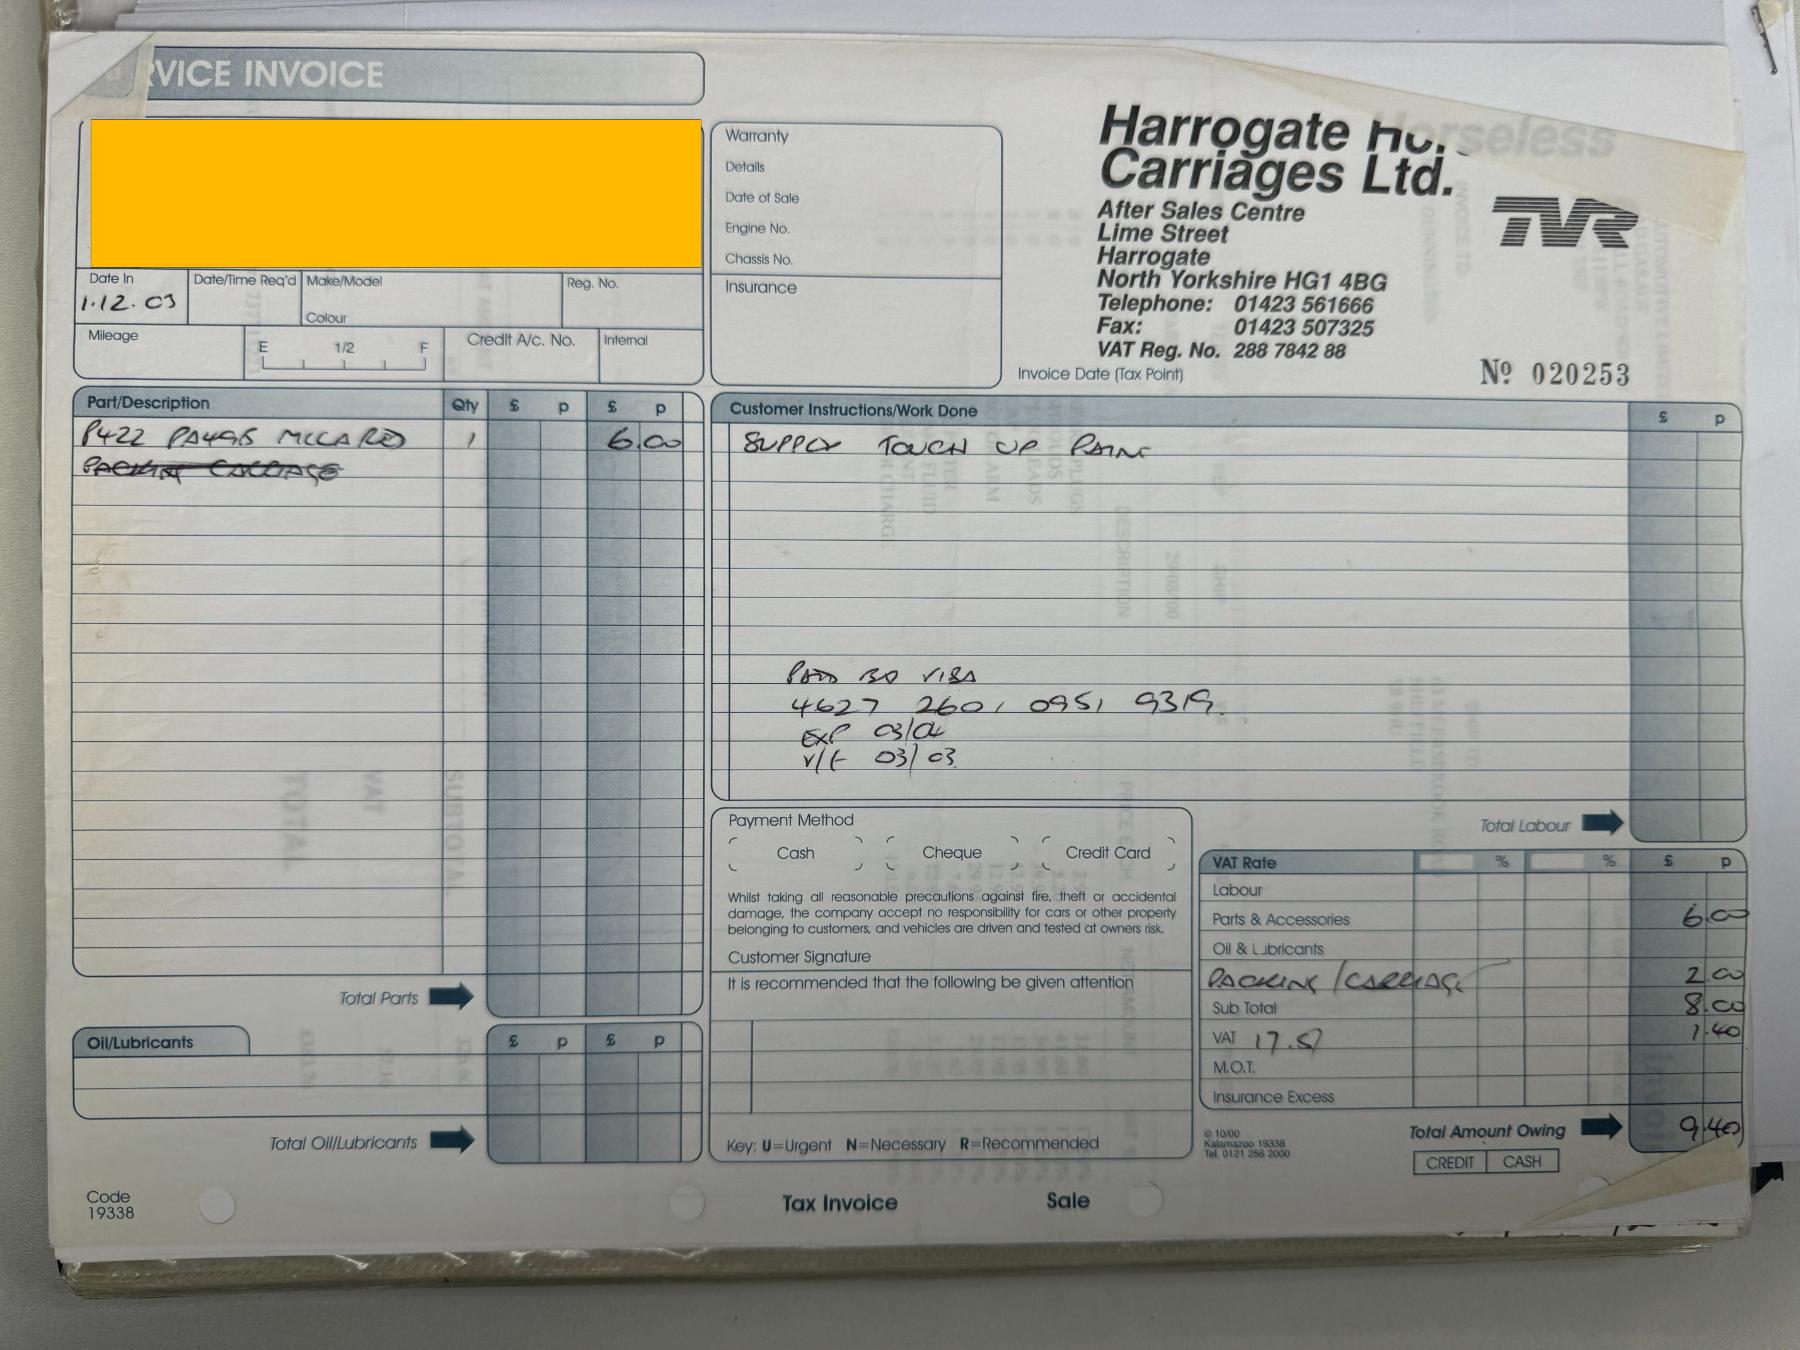 RVICE INVOICE
Harrogate Horseless
Carriages Ltd.
TVR
After Sales Centre
Lime Street
Harrogate
North Yorkshire HG1 4BG
Telephone: 01423 561666
Fax: 01423 507325
VAT Reg. No. 288 7842 88
Invoice Date (Tax Point)
Nº 020253
Warranty
Details
Date of Sale
Engine No.
Chassis No.
Insurance
Date In
1.12.03
Date/Time Req'd
Make/Model
Colour
Reg. No.
Mileage
E 1/2 F
Credit A/c. No.
Internal
Part/Description Qty £ p £ p
P422 MICA RED 1 6.00
PACKING CARRIAGE
Total Parts
Oil/Lubricants £ p £ p
Total Oil/Lubricants
Code
19338
Customer Instructions/Work Done £ p
SUPPLY TOUCH UP PAINT
PAID BY VISA
4627 2601 0951 9319
EXP 03/04
V/F 03/03
Total Labour
Payment Method
Cash Cheque Credit Card
Whilst taking all reasonable precautions against fire, theft or accidental
damage, the company accept no responsibility for cars or other property
belonging to customers, and vehicles are driven and tested at owners risk.
Customer Signature
It is recommended that the following be given attention
Key: U=Urgent N=Necessary R=Recommended
VAT Rate % % £ p
Labour
Parts & Accessories 6.00
Oil & Lubricants
PACKING/CARRIAGE 2.00
Sub Total 8.00
VAT 17.5 1.40
M.O.T.
Insurance Excess
Total Amount Owing 9.40
CREDIT CASH
© 10/00
Kalamazoo 19338
Tel. 0121 256 2000
Tax Invoice Sale